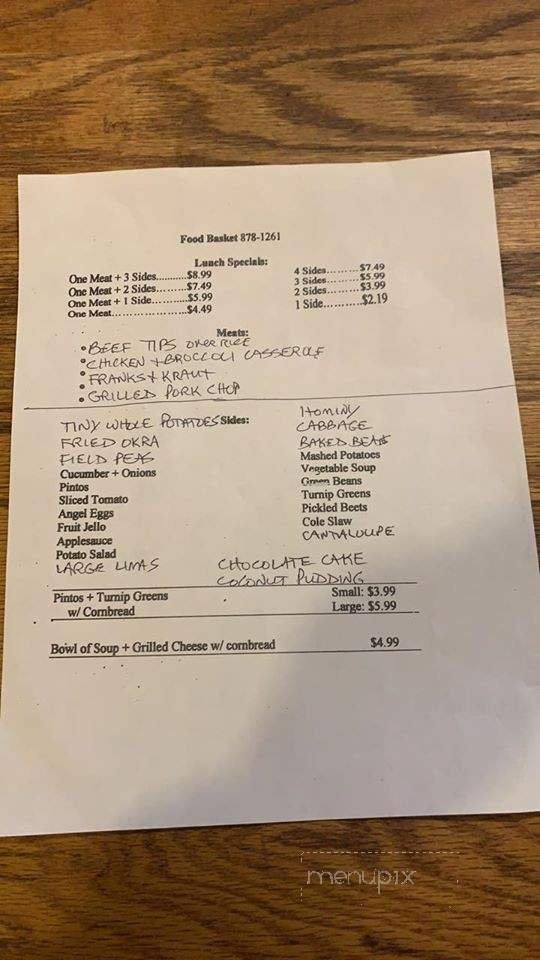 Food Basket 878-1261
Lunch Specials:
One Meat + 3 Sides...........$8.99
One Meat + 2 Sides.........$7.49
One Meat + 1 Side............$5.99
One Meat.....................$4.49
4 Sides.........$7.49
3 Sides.........$5.99
2 Sides.........$3.99
1 Side...........$2.19
Meats:
• BEEF TIPS OVER RICE
• CHICKEN + BROCCOLI CASSEROLE
• FRANKS + KRAUT
• GRILLED PORK CHOP
TINY WHOLE POTATOES Sides:
FRIED OKRA
FIELD PEAS
Cucumber + Onions
Pintos
Sliced Tomato
Angel Eggs
Fruit Jello
Applesauce
Potato Salad
LARGE LIMAS
HOMINY
CABBAGE
BAKED BEANS
Mashed Potatoes
Vegetable Soup
Green Beans
Turnip Greens
Pickled Beets
Cole Slaw
CANTALOUPE
CHOCOLATE CAKE
COCONUT PUDDING
Pintos + Turnip Greens
w/ Cornbread
Small: $3.99
Large: $5.99
Bowl of Soup + Grilled Cheese w/ cornbread $4.99
menupix